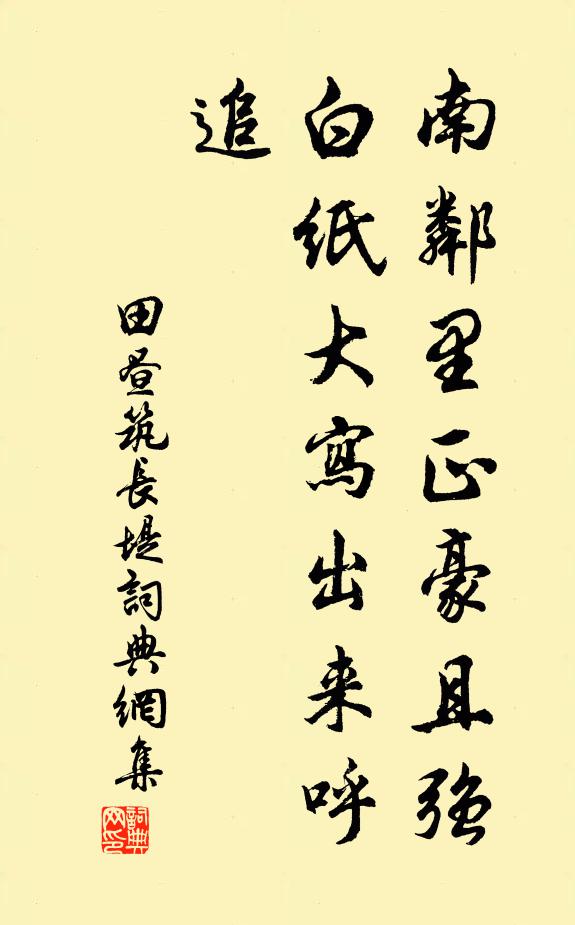 南鄰里正豪且強
白紙大寫出来呼
追
田晝筑長堤詞典網集
詞典
网印